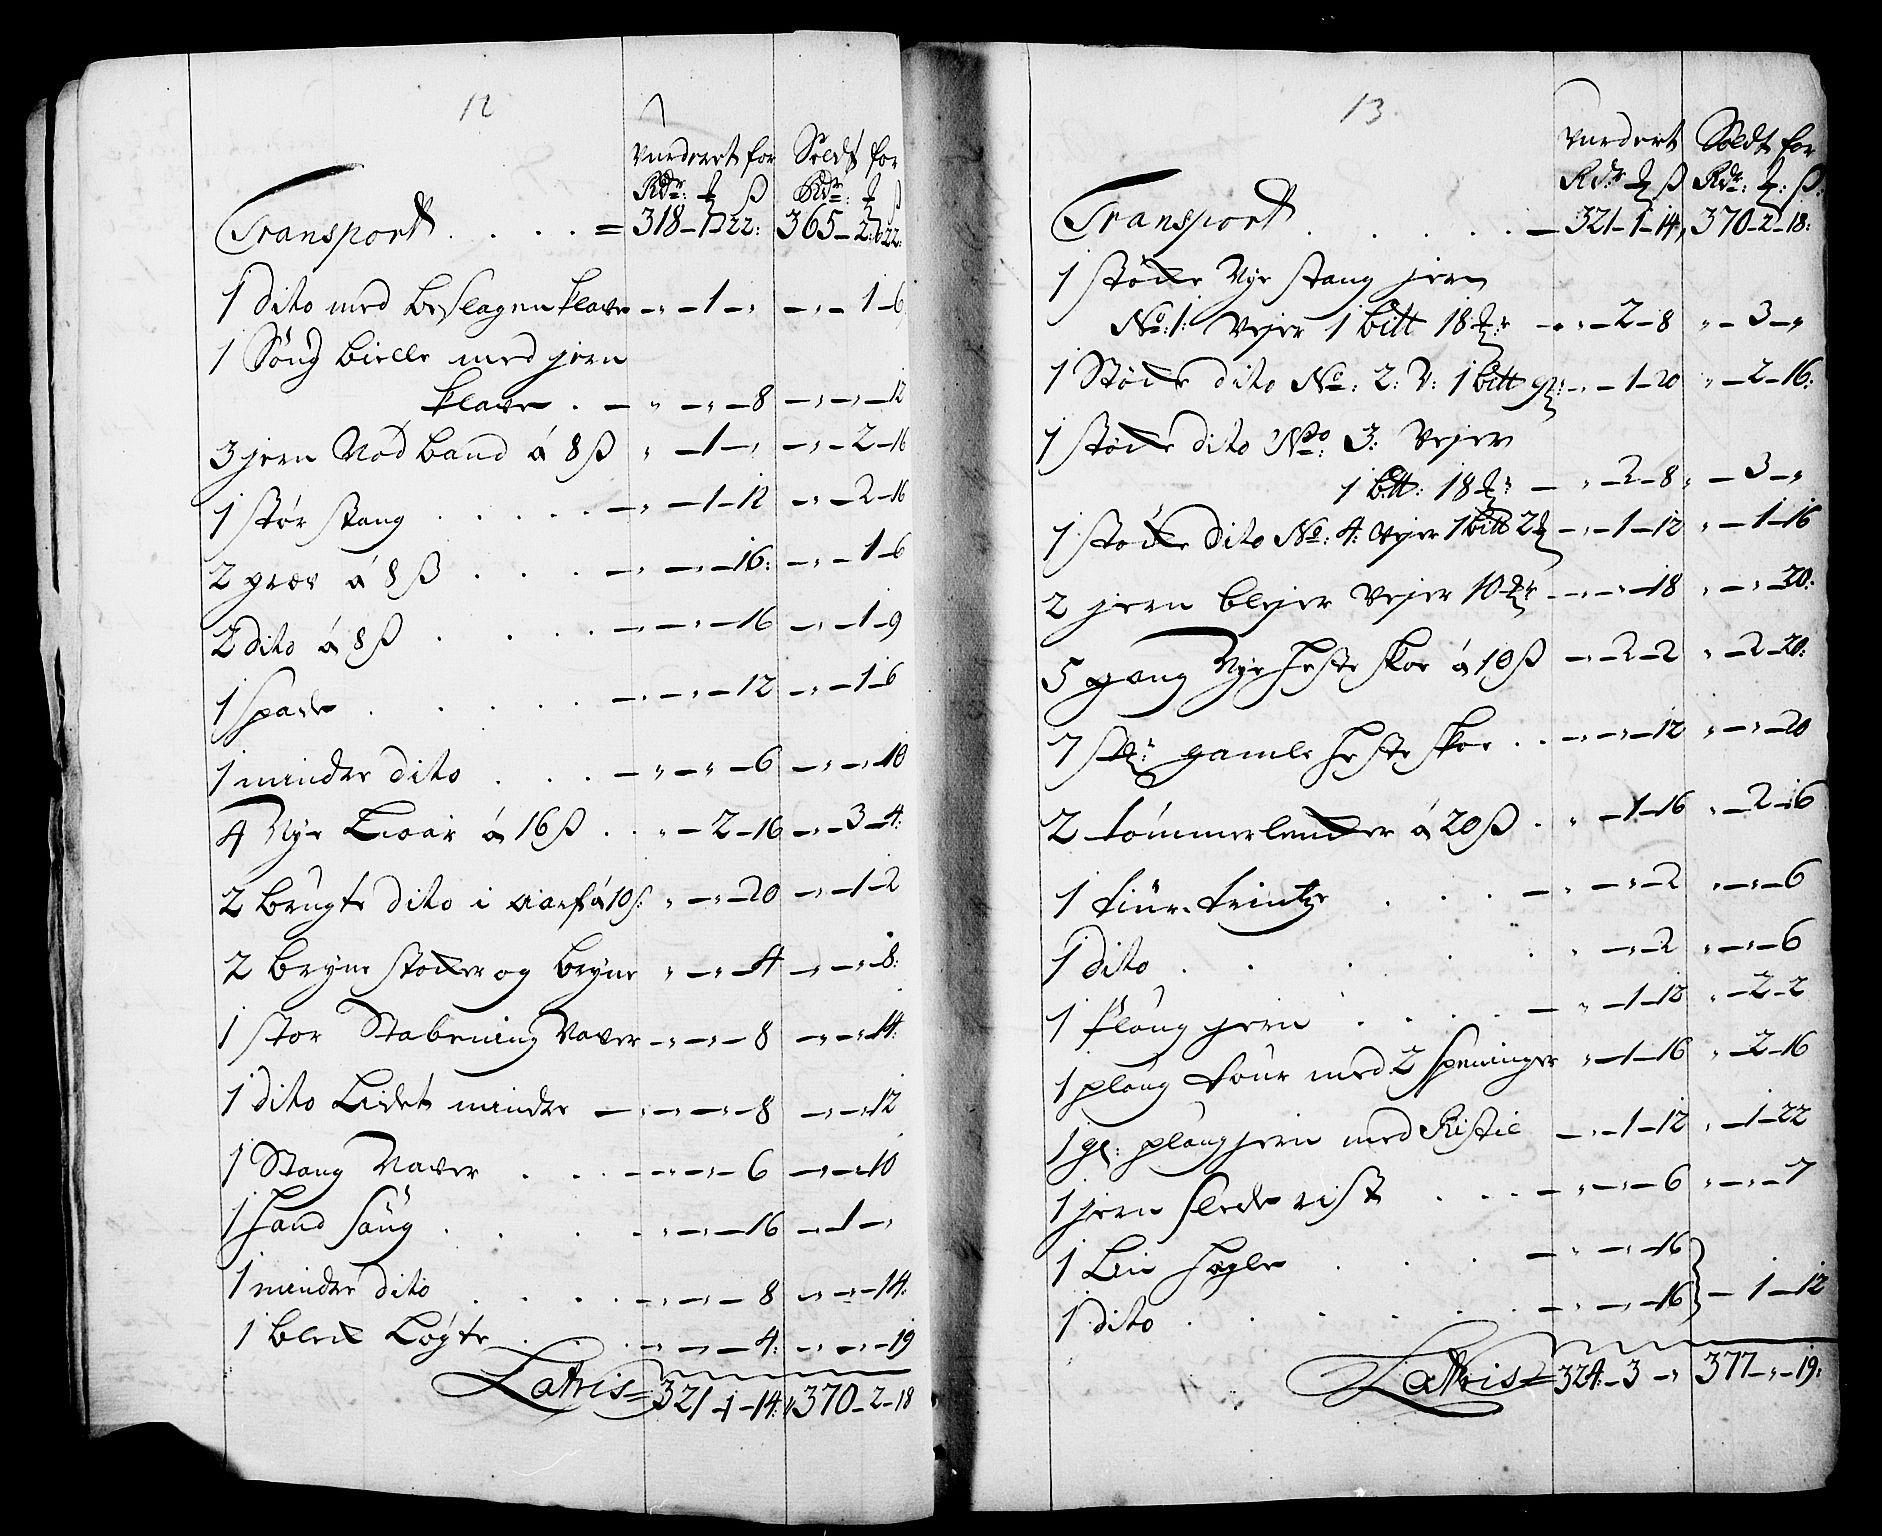 12
vurderet for Soldt for
Rdr: ₰ ß Rdr: ₰ ß
Transport . . . . = 318-1-22: 365-2-22:
1 dito med beslagen klave -"-1-" -"-1-6
1 Söug bielle med jern
klave . - " -"-8 -"-"-12
3 jern Vod band á 8 ß " -1-" -"-2-16
1 stör stang . . . . . -"-1-12 -"-2-16
2 græv á 8 ß . . . -"-"-16: -"-1-6
2 dito á 8 ß . . . . -"-"-16 -"-1-9
1 spade . . . . . -"-"-12 -"-1-6
1 mindre dito . . . -"-"-6 -"-"-10
4 Nye Lioär á 16 ß . . "-2-16 -"-3-4:
2 brugte dito i aarf á 10 ß: "-"-20 -"-1-2
2 bryne stöcker og bryne "-"-4 -"-"-8:
1 stor Stabening Naver -"-"-8 -"-"-14:
1 dito Lidet mindre -"-"-8 -"-"-12
1 Stang Naver . . -"-"-6 -"-"-10
1 Hand Saug . . . . "-"-16 -"-1-"
1 mindre dito . . . . -"-"-8 -"-"-14:
1 bleck Løgte . . . "-"-4: -"-"-19
Latris = 321-1-14: 370-2-18
13
vurdert Soldt for
Rdr: ₰ ß Rdr: ₰: ß:
Transport . . . . . - 321-1-14, 370-2-18:
1 stöcke Nye stang jern
No: 1: Vejer 1 bitt 18 ₰r -"-2-8 "-3-"
1 Stöcke dito No: 2: V: 1 bitt 9 ₰: -"-1-20 "-2-16:
1 stöcke dito No: 3: Vejer
1 bitt: 18 ₰r - "-2-8 "-3-"
1 stöcke dito No: 4: Vejer 1 bitt 2 ₰ -"-1-12 "-1-16
2 jern blejer Vejer 10 ₰r -"-"-18 "-"-20:
5 gang Nye heste skoe á 10 ß -"-2-2 "-2-20:
7 st: gamle heste skoe . . -"-"-12 "-"-20
2 tömmerlencker á 20 ß . "-1-16 "-2-16
1 . . . -"-"-2 "-"-6
1 dito . . . . . "-"-2 "-"-6
1 Ploug jern . . . . -"-1-12 "-2-2
1 ploug töur med 2 spæninger "-1-16 "-2-16
1 gl: ploug jern med Ristil -"-1-12 "-1-22
1 jern slede rist . . . -"-"-6 "-"-7
1 Lin Hegle . . . -"-"-16
1 dito . . . . . -"-"-16 } -1-12
Latris = 324-3-" 377-"-19: